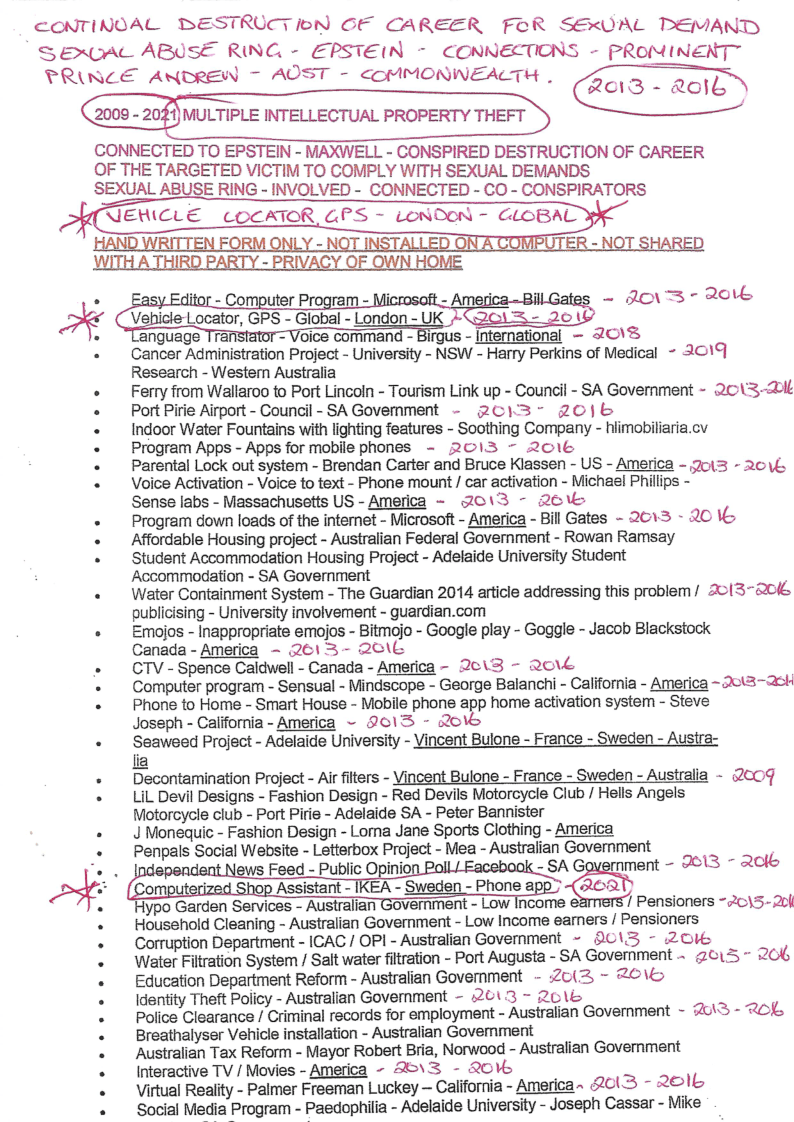 CONTINUAL DESTRUCTION OF CAREER FOR SEXUAL DEMAND
SEXUAL ABUSE RING - EPSTEIN - CONNECTIONS - PROMINENT
PRINCE ANDREW - AUST - COMMONWEALTH. 2013 - 2016
2009 - 2021 MULTIPLE INTELLECTUAL PROPERTY THEFT
CONNECTED TO EPSTEIN - MAXWELL - CONSPIRED DESTRUCTION OF CAREER
OF THE TARGETED VICTIM TO COMPLY WITH SEXUAL DEMANDS
SEXUAL ABUSE RING - INVOLVED - CONNECTED - CO - CONSPIRATORS
VEHICLE LOCATOR, GPS - LONDON - GLOBAL
HAND WRITTEN FORM ONLY - NOT INSTALLED ON A COMPUTER - NOT SHARED
WITH A THIRD PARTY - PRIVACY OF OWN HOME
• Easy Editor - Computer Program - Microsoft - America - Bill Gates - 2013 - 2016
• Vehicle Locator, GPS - Global - London - UK - 2013 - 2016
• Language Translator - Voice command - Birgus - International - 2018
• Cancer Administration Project - University - NSW - Harry Perkins of Medical - 2019
Research - Western Australia
• Ferry from Wallaroo to Port Lincoln - Tourism Link up - Council - SA Government - 2013-2016
• Port Pirie Airport - Council - SA Government - 2013 - 2016
• Indoor Water Fountains with lighting features - Soothing Company - hlimobiliaria.cv
• Program Apps - Apps for mobile phones - 2013 - 2016
• Parental Lock out system - Brendan Carter and Bruce Klassen - US - America - 2013 - 2016
• Voice Activation - Voice to text - Phone mount / car activation - Michael Phillips -
Sense labs - Massachusetts US - America - 2013 - 2016
• Program down loads of the internet - Microsoft - America - Bill Gates - 2013 - 2016
• Affordable Housing project - Australian Federal Government - Rowan Ramsay
• Student Accommodation Housing Project - Adelaide University Student
Accommodation - SA Government
• Water Containment System - The Guardian 2014 article addressing this problem / 2013-2016
publicising - University involvement - guardian.com
• Emojos - Inappropriate emojos - Bitmojo - Google play - Goggle - Jacob Blackstock
Canada - America - 2013 - 2016
• CTV - Spence Caldwell - Canada - America - 2013 - 2016
• Computer program - Sensual - Mindscope - George Balanchi - California - America - 2013-2016
• Phone to Home - Smart House - Mobile phone app home activation system - Steve
Joseph - California - America - 2013 - 2016
• Seaweed Project - Adelaide University - Vincent Bulone - France - Sweden - Austra-
lia
• Decontamination Project - Air filters - Vincent Bulone - France - Sweden - Australia - 2009
• LiL Devil Designs - Fashion Design - Red Devils Motorcycle Club / Hells Angels
Motorcycle club - Port Pirie - Adelaide SA - Peter Bannister
• J Monequic - Fashion Design - Lorna Jane Sports Clothing - America
• Penpals Social Website - Letterbox Project - Mea - Australian Government
• Independent News Feed - Public Opinion Poll / Facebook - SA Government - 2013 - 2016
• Computerized Shop Assistant - IKEA - Sweden - Phone app - 2021
• Hypo Garden Services - Australian Government - Low Income earners / Pensioners - 2013-2016
• Household Cleaning - Australian Government - Low Income earners / Pensioners
• Corruption Department - ICAC / OPI - Australian Government - 2013 - 2016
• Water Filtration System / Salt water filtration - Port Augusta - SA Government - 2013 - 2016
• Education Department Reform - Australian Government - 2013 - 2016
• Identity Theft Policy - Australian Government - 2013 - 2016
• Police Clearance / Criminal records for employment - Australian Government - 2013 - 2016
• Breathalyser Vehicle installation - Australian Government
• Australian Tax Reform - Mayor Robert Bria, Norwood - Australian Government
• Interactive TV / Movies - America - 2013 - 2016
• Virtual Reality - Palmer Freeman Luckey – California - America - 2013 - 2016
• Social Media Program - Paedophilia - Adelaide University - Joseph Cassar - Mike